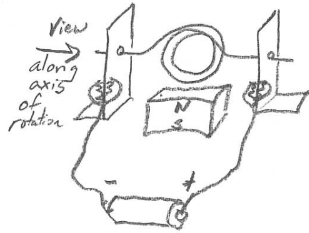 View
along
axis
of
rotation
N
S
- +